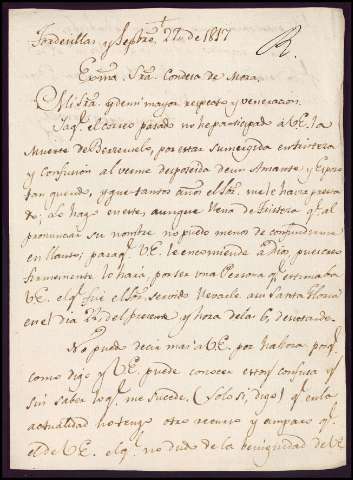 Tordesillas y Septbre 27 de 1817
R.
Exma. Sra. Condesa de Mora.
Mi Sra. y de mi mayor respeto y veneracion.
Ya q.e el correo pasado no he participado á VE. la
Muerte de Berruelo, por estar sumergida en tristeza
y confusion al verme desposeida de un Amante, y Esposo
tan querido, y que tantos años el Sor. me le havia presta
do; lo hago en este, aunque llena de tristeza q.e al
pronunciar su nombre no puedo menos de confundirme
en llantos; para q.e VE. le encomiende á Dios, pues creo
firmemente lo hará, por ser una Persona q.e estimaba
VE. el q.e fue el Sor. servido llevarle a su Santa Gloria
en el dia 22, del presente y hora de las 6, de su tarde.
No puedo decir mas a VE. por hahora porq.e
como digo y VE. puede conocer estoy confusa y
sin saber lo q.e me sucede. (Solo si, digo) q.e en la
actualidad no tengo otro recurso y amparo q.e
el de VE. el q.e no dudo de la benignidad de VE